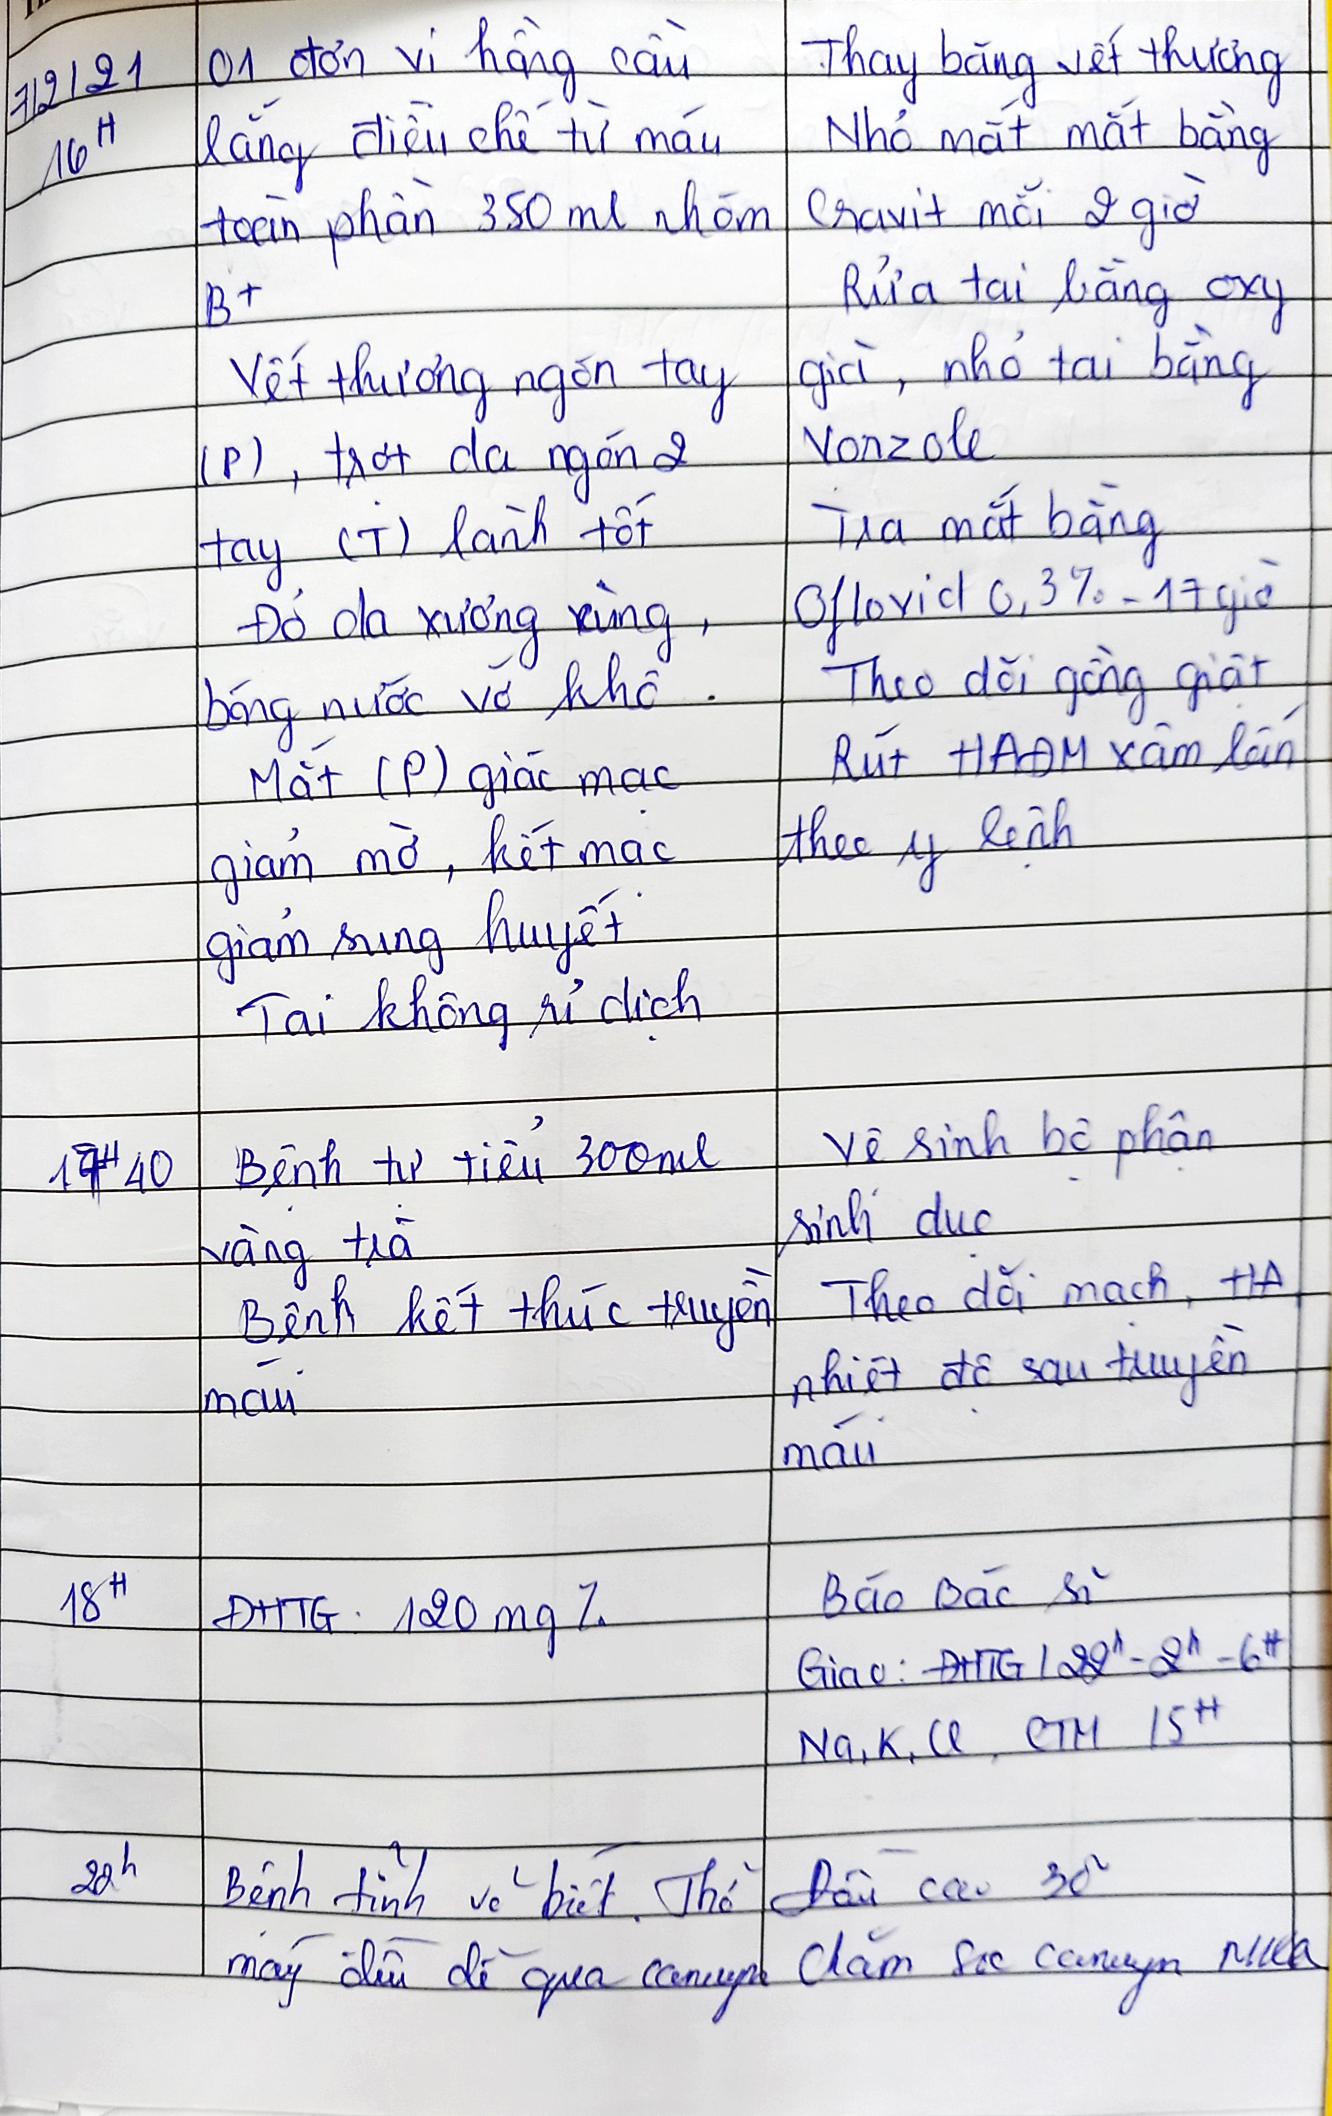 7/2/21
16H
01 đơn vị hồng cầu
lắng điều chế từ máu
toàn phần 350 ml nhóm
B+
Vết thương ngón tay
(P), trợt da ngón 2
tay (T) lành tốt
Đỏ da xương sùng,
bóng nước vỡ khô.
Mắt (P) giác mạc
giảm mờ, kết mạc
giảm sung huyết
Tai không rỉ dịch
Thay băng vết thương
Nhỏ mắt mắt bằng
Cravit mỗi 2 giờ
Rửa tai bằng oxy
già, nhỏ tai bằng
Vonzole
Tra mắt bằng
Oflovid 0,3% - 17 giờ
Theo dõi gồng giật
Rút HAĐM xâm lấn
theo y lệnh
17H40
Bệnh tự tiểu 300ml
vàng trà
Bệnh kết thúc truyền
máu
Vệ sinh bộ phận
sinh dục
Theo dõi mạch, HA
nhiệt độ sau truyền
máu
18H
ĐHTG: 120 mg%
Báo Bác sĩ
Giao: ĐHTG / 22h - 2h - 6H
Na, K, Cl, CTM 15H
22h
Bệnh tỉnh vẻ biết. Thở
máy đều dễ qua canuyn
Đầu cao 30°
Chăm sóc canuyn